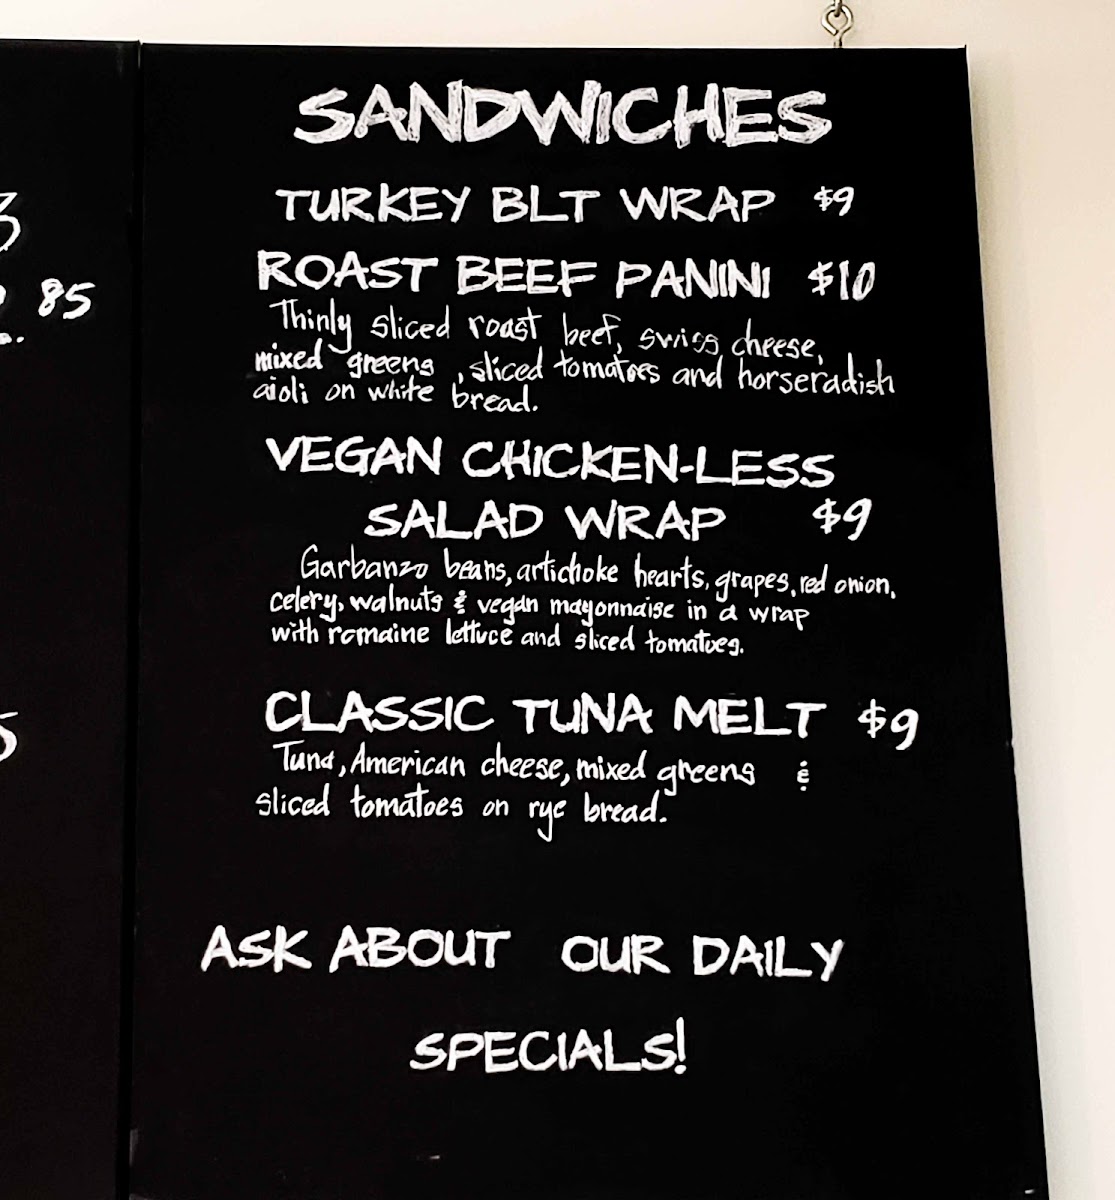 SANDWICHES
TURKEY BLT WRAP $9
ROAST BEEF PANINI $10
Thinly sliced roast beef, swiss cheese,
mixed greens, sliced tomatoes and horseradish
aioli on white bread.
VEGAN CHICKEN-LESS
SALAD WRAP $9
Garbanzo beans, artichoke hearts, grapes, red onion,
celery, walnuts & vegan mayonnaise in a wrap
with romaine lettuce and sliced tomatoes.
CLASSIC TUNA MELT $9
Tuna, American cheese, mixed greens &
sliced tomatoes on rye bread.
ASK ABOUT OUR DAILY
SPECIALS!
85